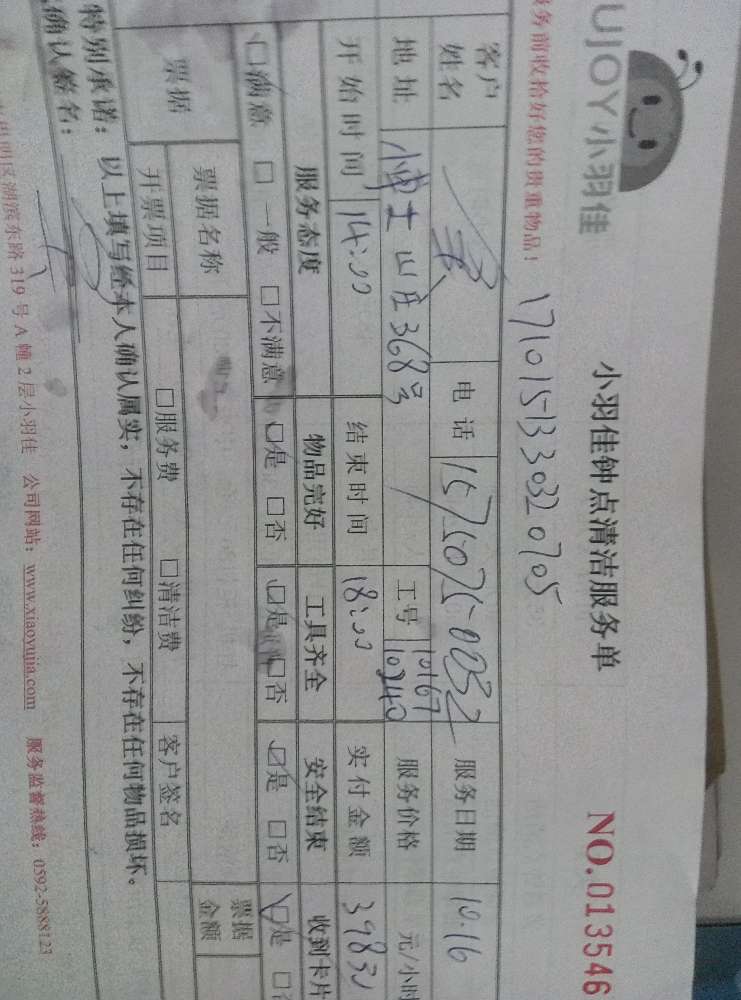 UJOY小羽佳
小羽佳钟点清洁服务单
NO.013546
务前收拾好您的贵重物品！
17101513303 20705
客户姓名 电话 服务日期 10.16
地址 博士山庄368号 工号 10167 10240 服务价格 元/小时
开始时间 14:00 结束时间 18:00 实付金额 398
服务态度 物品完好 工具齐全 安全结束 收到卡片
□满意 □一般 □不满意 □是 □否 □是 □否 ☑是 □否 □是
票据 票据名称 票据金额
开票项目 □服务费 □清洁费 客户签名
特别承诺：以上填写经本人确认属实，不存在任何纠纷，不存在任何物品损坏。
确认签名：
明区湖滨东路319号A幢2层小羽佳 公司网站：www.xiaoyujia.com 服务监督热线：0592-5888123